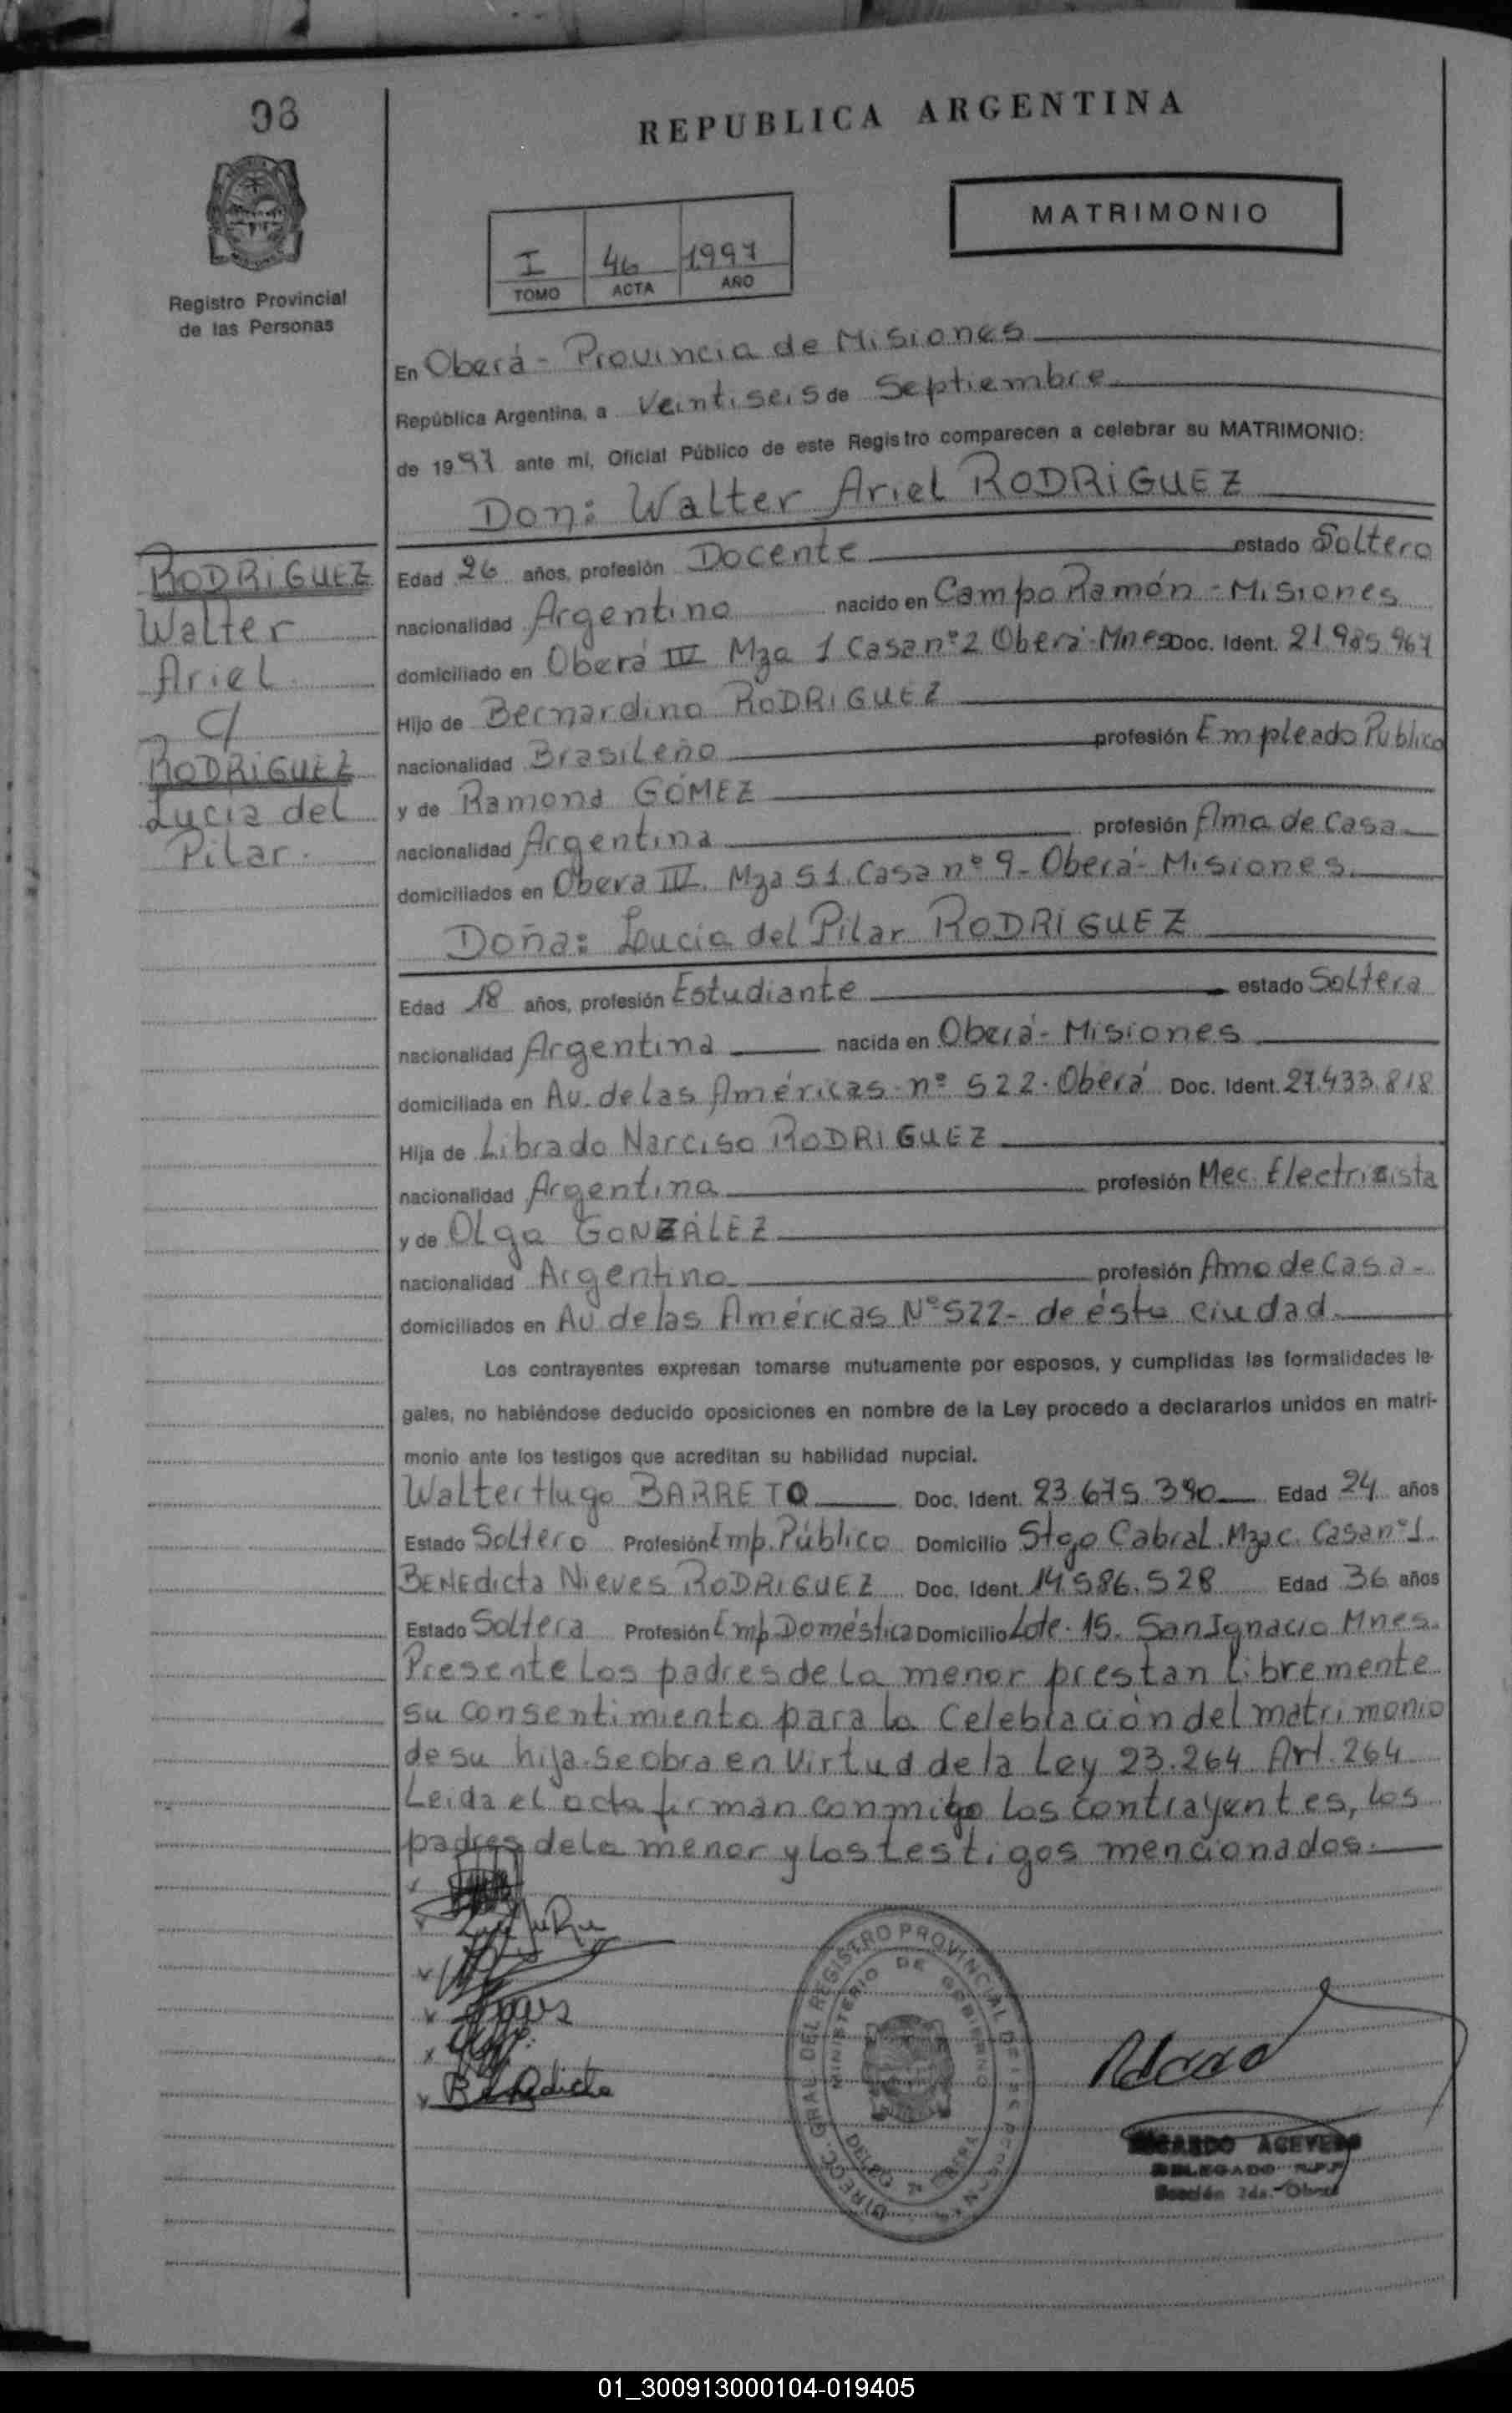 98
REPUBLICA ARGENTINA
MATRIMONIO
I 46 1997
TOMO ACTA AÑO
Registro Provincial
de las Personas
En Oberá - Provincia de Misiones
República Argentina, a Veintiseis de Septiembre
de 1997 ante mí, Oficial Público de este Registro comparecen a celebrar su MATRIMONIO:
Don: Walter Ariel RODRIGUEZ
RODRIGUEZ
Walter
Ariel
c/
RODRIGUEZ
Lucia del
Pilar.
Edad 26 años, profesión Docente estado Soltero
nacionalidad Argentino nacido en Campo Ramón - Misiones
domiciliado en Oberá IV Mza 1 Casa nº 2 Oberá-Mnes Doc. Ident. 21.985.967
Hijo de Bernardino RODRIGUEZ
nacionalidad Brasileño profesión Empleado Publico
y de Ramona GÓMEZ
nacionalidad Argentina profesión Ama de Casa
domiciliados en Obera IV. Mza 51. Casa nº 9- Oberá- Misiones.
Doña: Lucia del Pilar RODRIGUEZ
Edad 18 años, profesión Estudiante estado Soltera
nacionalidad Argentina nacida en Oberá- Misiones
domiciliada en Av. de las Américas nº 522. Oberá Doc. Ident. 27.433.818
Hija de Librado Narciso RODRIGUEZ
nacionalidad Argentina profesión Mec. Electricista
y de Olga GONZÁLEZ
nacionalidad Argentina profesión Ama de Casa-
domiciliados en Av de las Américas Nº 522- de ésta ciudad.
Los contrayentes expresan tomarse mutuamente por esposos, y cumplidas las formalidades le-
gales, no habiéndose deducido oposiciones en nombre de la Ley procedo a declararlos unidos en matri-
monio ante los testigos que acreditan su habilidad nupcial.
Walter Hugo BARRETO Doc. Ident. 23.675.390 Edad 24 años
Estado Soltero Profesión Emp. Público Domicilio Stgo Cabral. Mza C. Casa nº 1.
BENEdicta Nieves RODRIGUEZ Doc. Ident. 14.586.528 Edad 36 años
Estado Soltera Profesión Emp Doméstica Domicilio Lote. 15. San Ignacio Mnes.
Presente Los padres de La menor prestan libremente
su consentimiento para la Celebración del matrimonio
de su hija. Se obra en Virtud de la Ley 23.264 Art. 264
Leida el acta firman conmigo los contrayentes, los
padres de la menor y los testigos mencionados.
Benedicta
DIRECC. GRAL. DEL REGISTRO PROVINCIAL DE LAS PERSONAS
MINISTERIO DE GOBIERNO
RICARDO ACEVEDO
DELEGADO R.P.P.
Sección 2da. Oberá
01_300913000104-019405